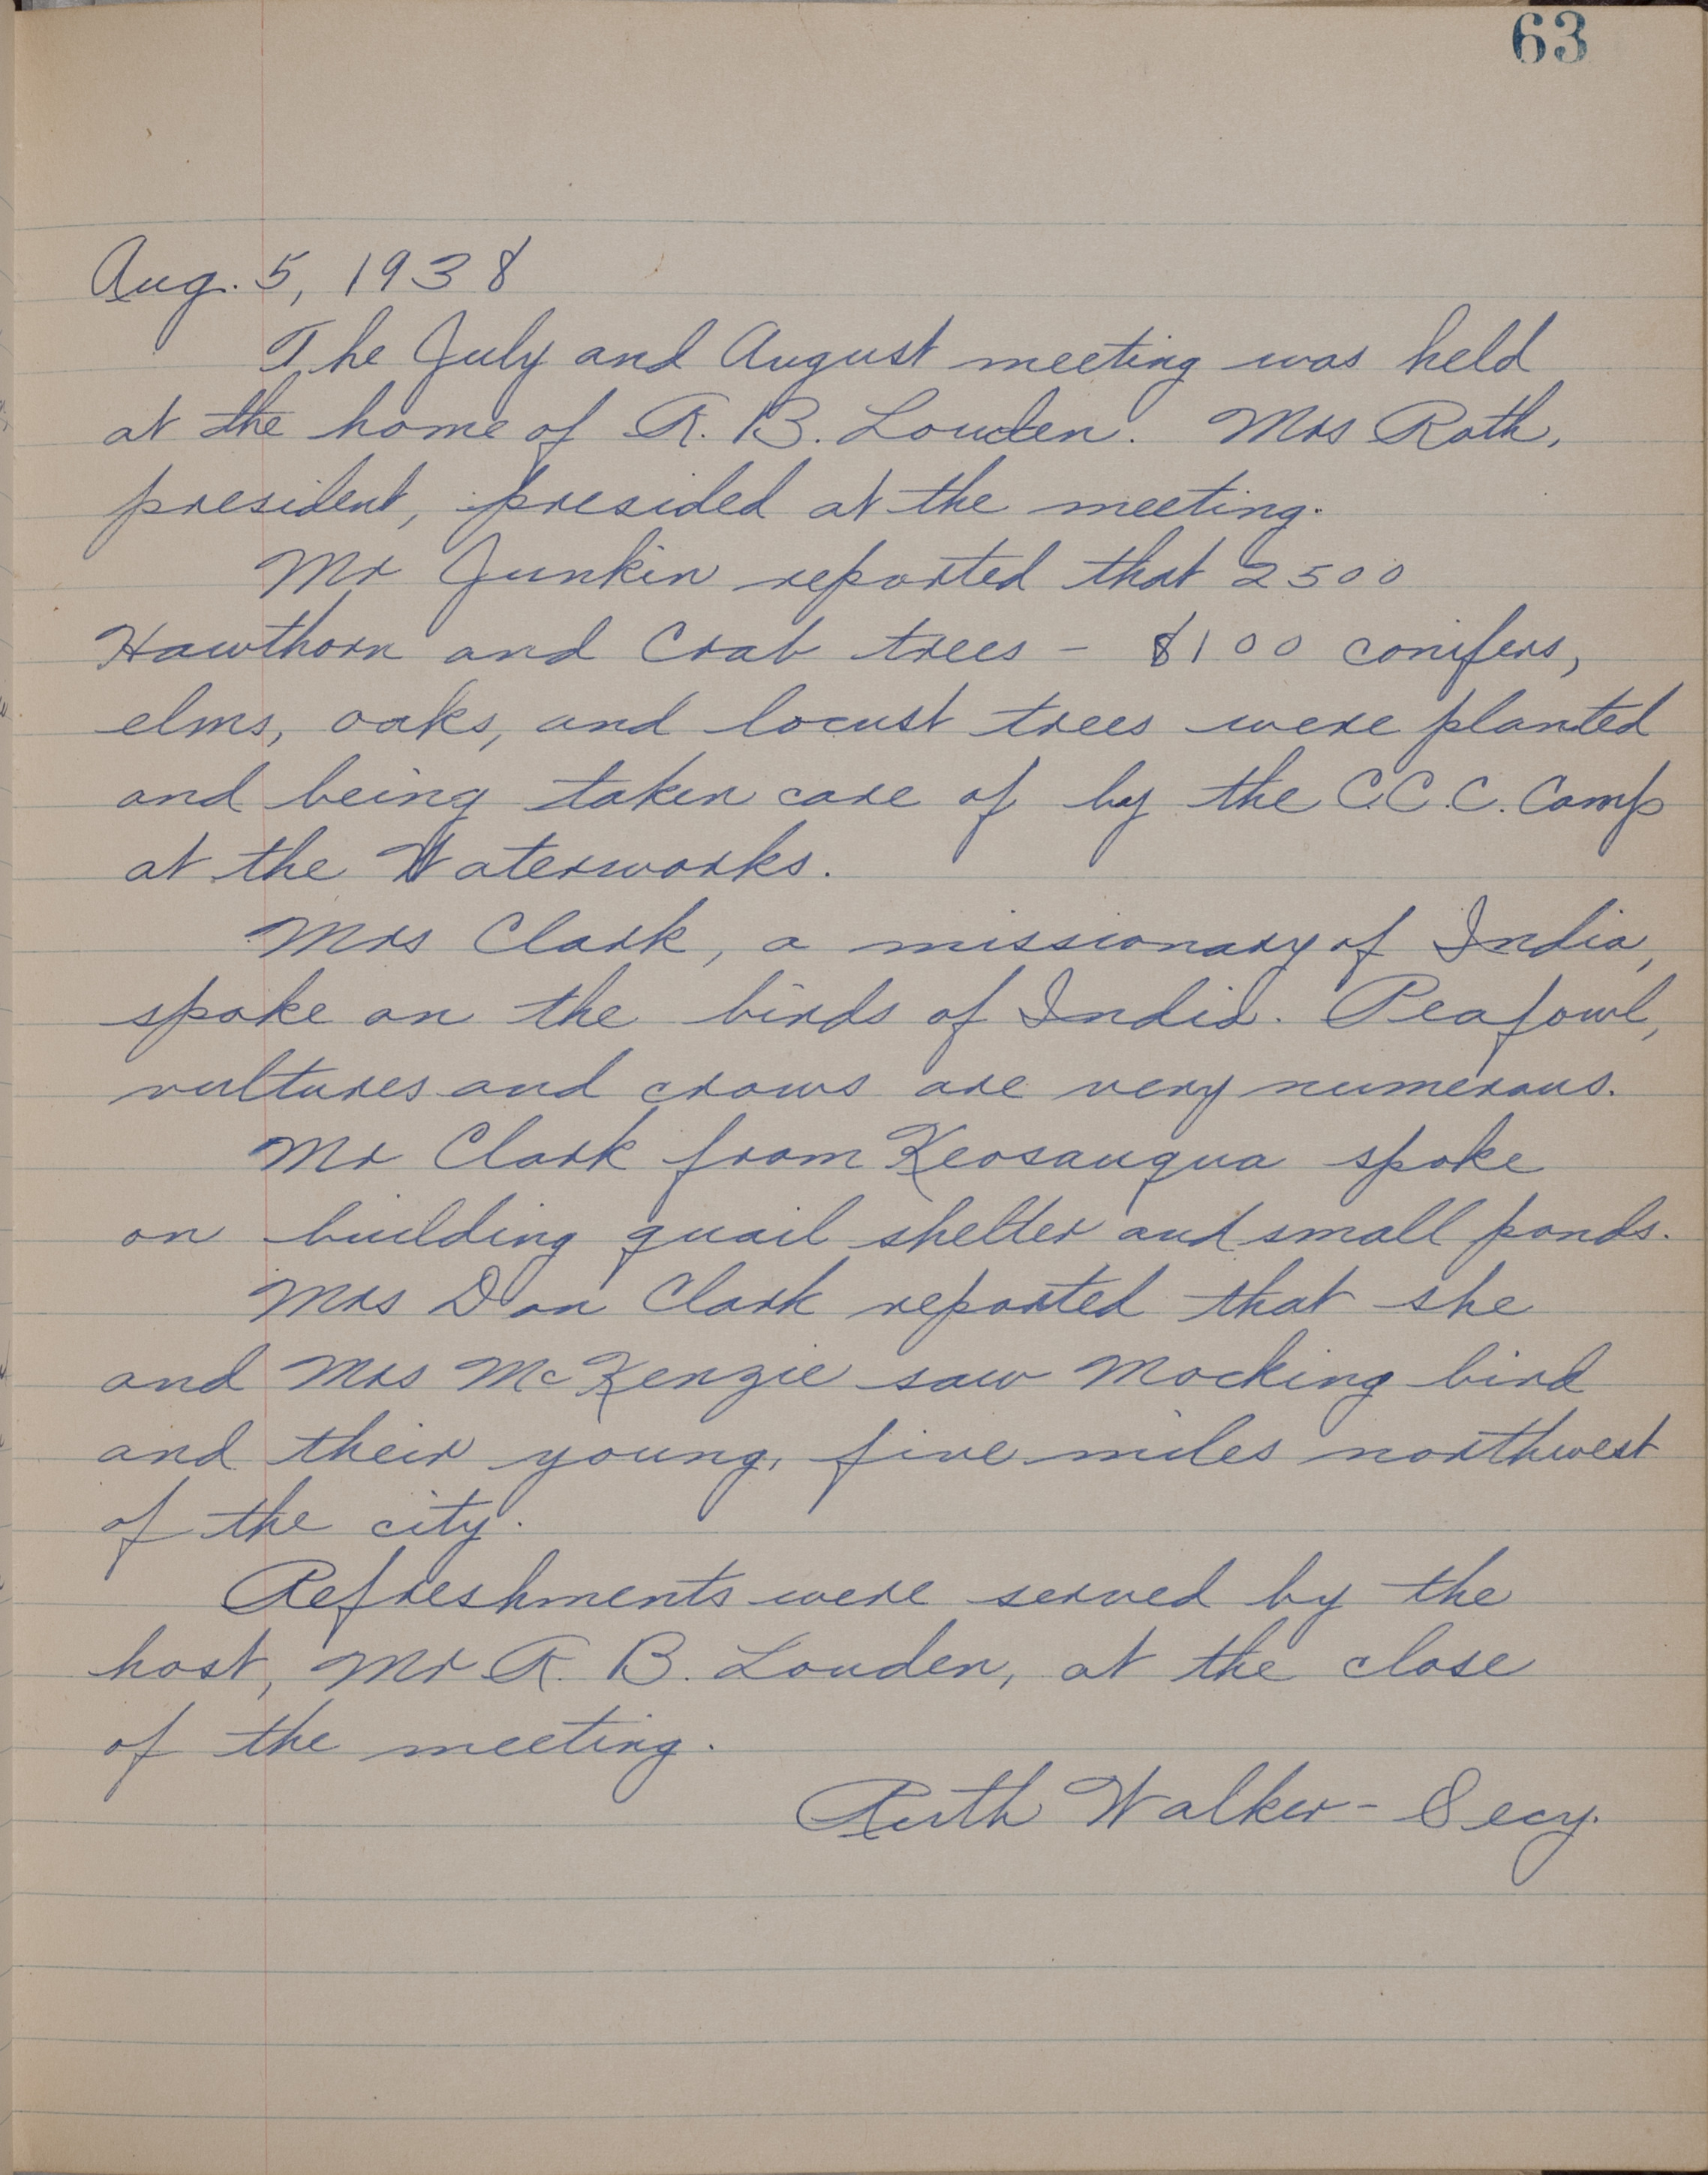 63
Aug. 5, 1938
The July and August meeting was held
at the home of R. B. Louden. Mrs Roth,
president, presided at the meeting.
Mr Junkin reported that 2500
Hawthorn and Crab trees - 8100 conifers,
elms, oaks, and locust trees were planted
and being taken care of by the C.C.C. Camp
at the Waterworks.
Mrs Clark, a missionary of India,
spoke on the birds of India. Peafowl,
vultures and crows are very numerous.
Mr Clark from Keosauqua spoke
on building quail shelter and small ponds.
Mrs Don Clark reported that she
and Mrs McKenzie saw Mocking bird
and their young, five miles northwest
of the city.
Refreshments were served by the
host, Mr R. B. Louden, at the close
of the meeting.
Ruth Walker - Secy.